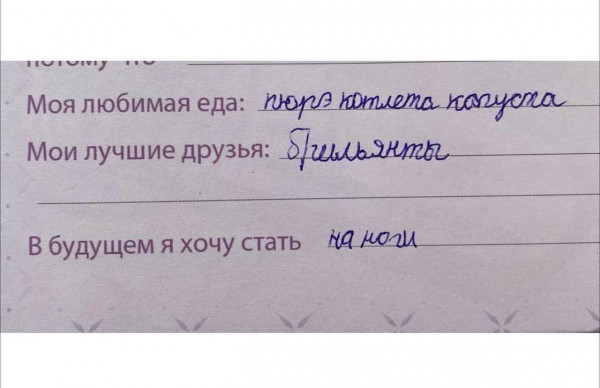 потому что
Моя любимая еда: пюрэ котлета капуста
Мои лучшие друзья: брильянты
В будущем я хочу стать на ноги